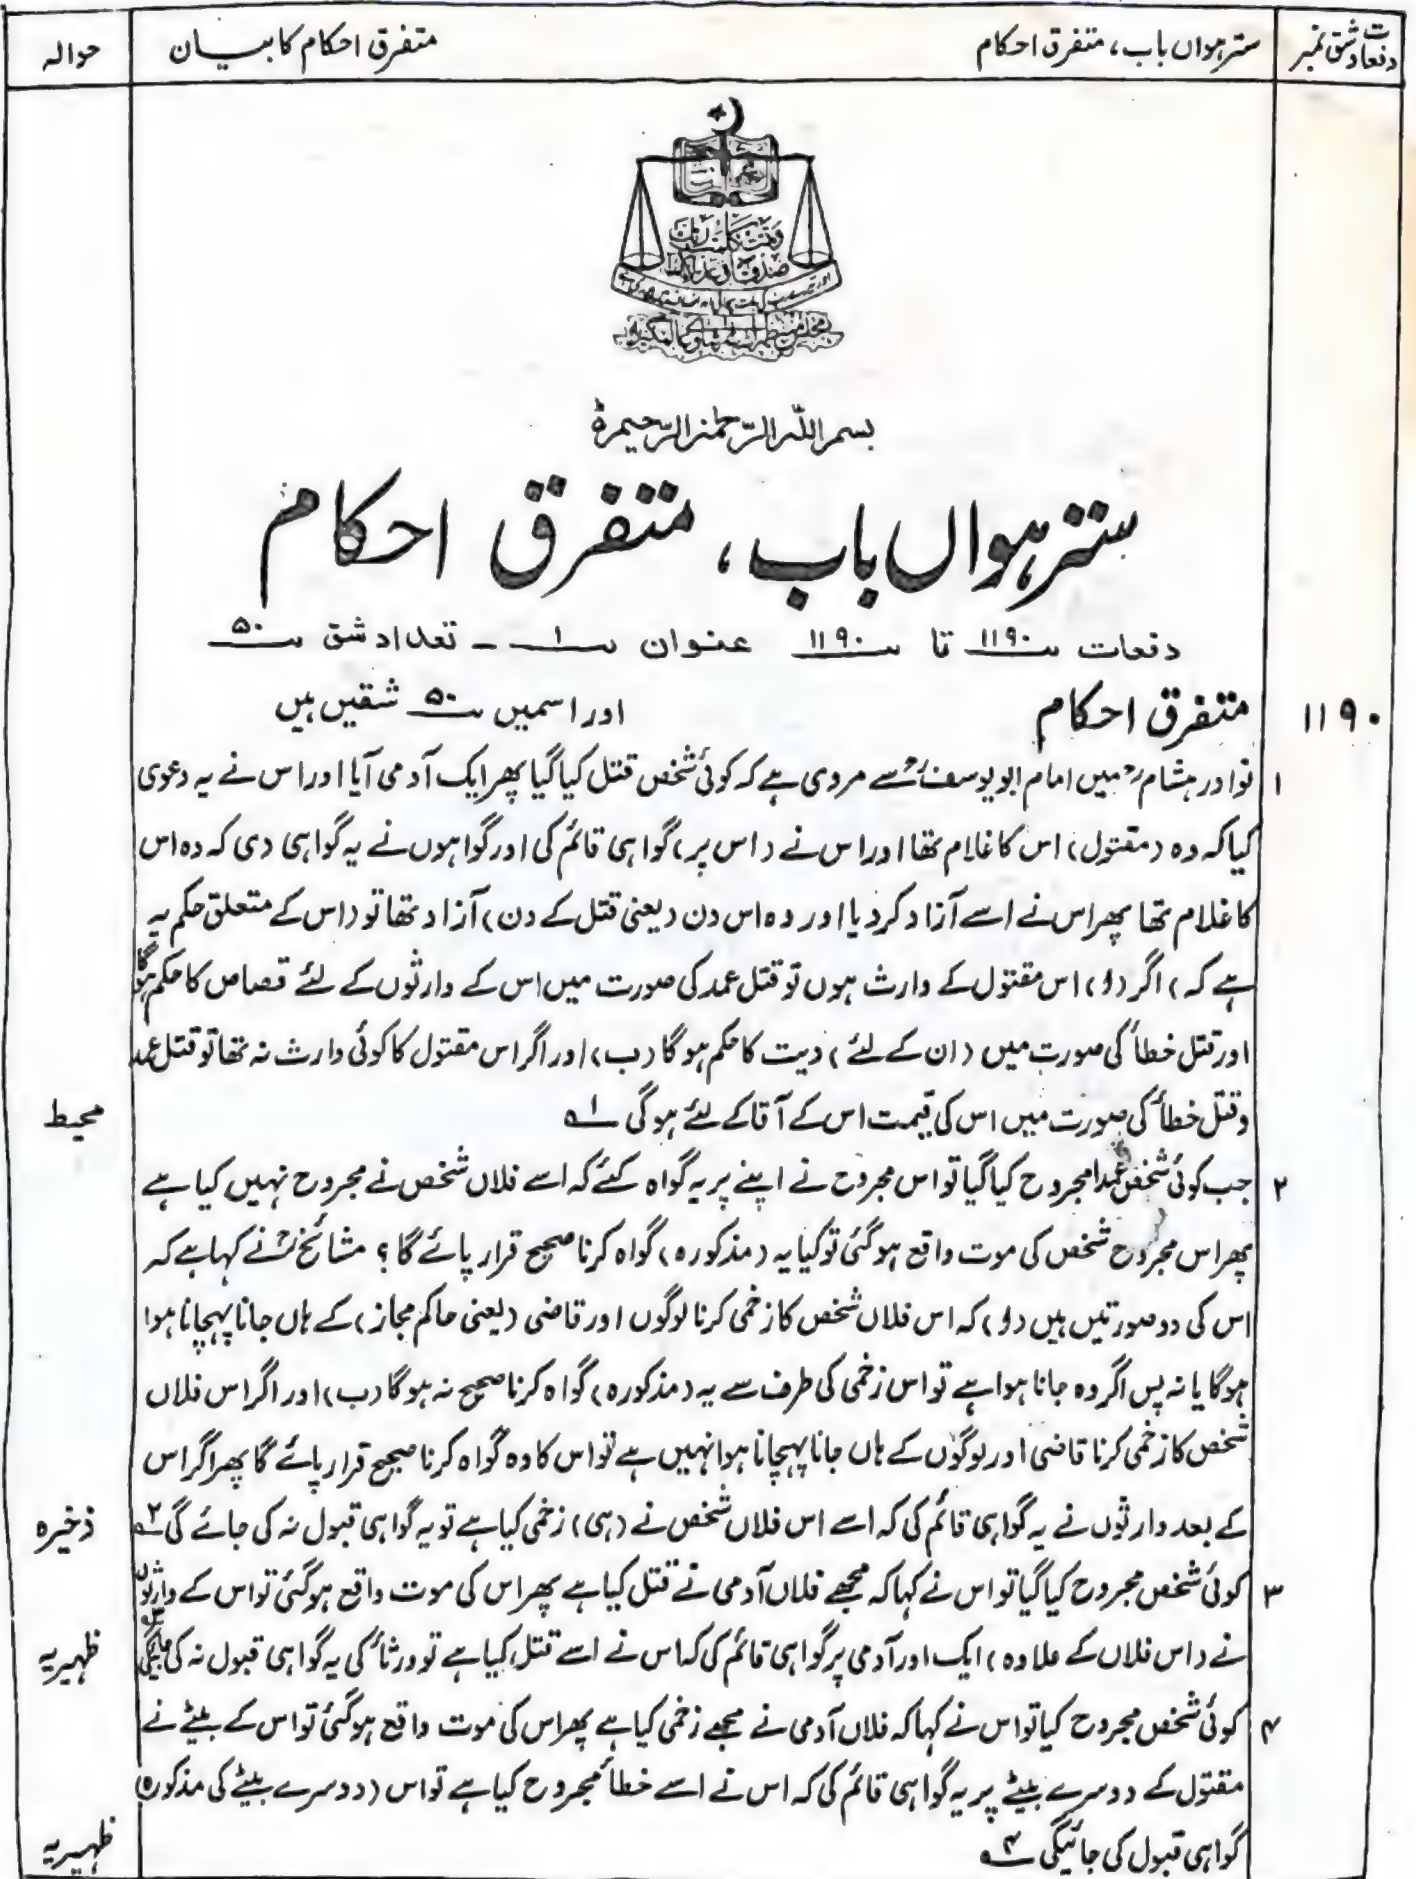 دفعات شق نمبر
سترہواں باب، متفرق احکام
متفرق احکام کا بیان
حوالہ
بسم اللہ الرّحمٰن الرّحیم
سترہواں باب، متفرق احکام
دفعات ۱۱۹۰ تا ۱۱۹۰ عنوان ۱ - تعداد شق ۵۰
۱۱۹۰ متفرق احکام اور اسمیں ۵۰ شقیں ہیں
۱ نوادر ہشامؒ میں امام ابو یوسفؒ سے مروی ہے کہ کوئی شخص قتل کیا گیا پھر ایک آدمی آیا اور اس نے یہ دعوی
کیا کہ وہ (مقتول) اس کا غلام تھا اور اس نے (اس پر) گواہی قائم کی اور گواہوں نے یہ گواہی دی کہ وہ اس
کا غلام تھا پھر اس نے اسے آزاد کر دیا اور وہ اس دن (یعنی قتل کے دن) آزاد تھا تو (اس کے متعلق حکم یہ
ہے کہ) اگر (ا) اس مقتول کے وارث ہوں تو قتل عمد کی صورت میں اس کے وارثوں کے لئے قصاص کا حکم ہوگا
اور قتل خطأ کی صورت میں (ان کے لئے) دیت کا حکم ہو گا (ب) اور اگر اس مقتول کا کوئی وارث نہ تھا تو قتل عمد
و قتل خطأ کی صورت میں اس کی قیمت اس کے آقا کے لئے ہو گی ۱؎ محیط
۲ جب کوئی شخص عمداً مجروح کیا گیا تو اس مجروح نے اپنے پر یہ گواہ کئے کہ اسے فلاں شخص نے مجروح نہیں کیا ہے
پھر اس مجروح شخص کی موت واقع ہو گئی تو کیا یہ (مذکورہ) گواہ کرنا صحیح قرار پائے گا؟ مشائخؒ نے کہا ہے کہ
اس کی دو صورتیں ہیں (ا) کہ اس فلاں شخص کا زخمی کرنا لوگوں اور قاضی (یعنی حاکم مجاز) کے ہاں جانا پہچانا ہوا
ہو گا یا نہ پس اگر وہ جانا ہوا ہے تو اس زخمی کی طرف سے یہ (مذکورہ) گواہ کرنا صحیح نہ ہو گا (ب) اور اگر اس فلاں
شخص کا زخمی کرنا قاضی اور لوگوں کے ہاں جانا پہچانا ہوا نہیں ہے تو اس کا وہ گواہ کرنا صحیح قرار پائے گا پھر اگر اس
کے بعد وارثوں نے یہ گواہی قائم کی کہ اسے اس فلاں شخص نے (ہی) زخمی کیا ہے تو یہ گواہی قبول نہ کی جائے گی ۲؎ ذخیرہ
۳ کوئی شخص مجروح کیا گیا تو اس نے کہا کہ مجھے فلاں آدمی نے قتل کیا ہے پھر اس کی موت واقع ہو گئی تو اس کے وارثوں
نے (اس فلاں کے علاوہ) ایک اور آدمی پر گواہی قائم کی کہ اس نے اسے قتل کیا ہے تو ورثأ کی یہ گواہی قبول نہ کی جائیگی ۳؎ ظہیریہ
۴ کوئی شخص مجروح کیا تو اس نے کہا کہ فلاں آدمی نے مجھے زخمی کیا ہے پھر اس کی موت واقع ہو گئی تو اس کے بیٹے نے
مقتول کے دوسرے بیٹے پر یہ گواہی قائم کی کہ اس نے اسے خطأ مجروح کیا ہے تو اس (دوسرے بیٹے کی مذکورہ)
گواہی قبول کی جائیگی ۴؎ ظہیریہ